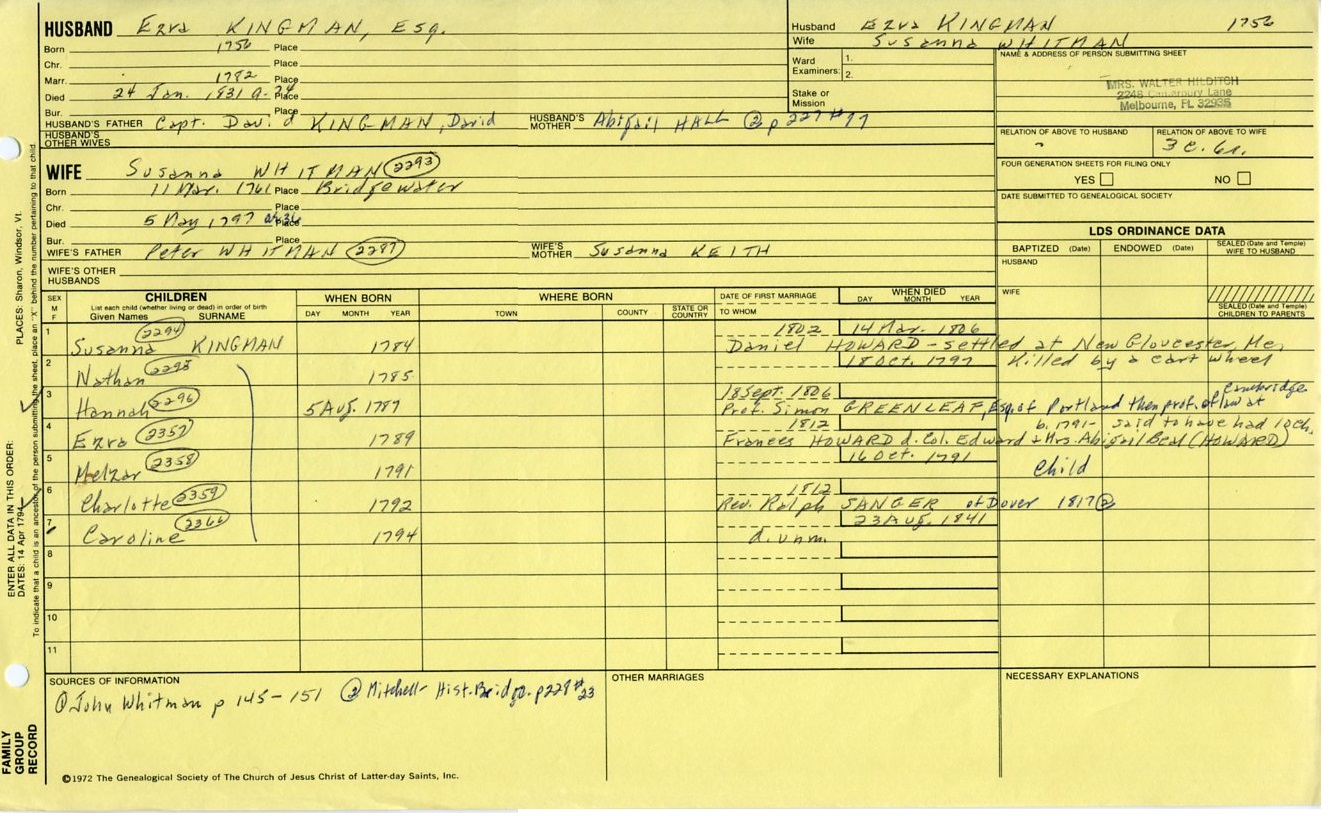 HUSBAND Ezra KINGMAN, Esq.
Born 1756 Place
Chr. Place
Marr. 1782 Place
Died 24 Jan. 1831 a-74 Place
Bur. Place
HUSBAND'S FATHER Capt. David KINGMAN, David HUSBAND'S MOTHER Abigail HALL ② p 227 #17
HUSBAND'S OTHER WIVES
Husband Ezra KINGMAN 1756
Wife Susanna WHITMAN
Ward Examiners: 1.
2.
Stake or Mission
NAME & ADDRESS OF PERSON SUBMITTING SHEET
MRS. WALTER HILDITCH
2248 Canterbury Lane
Melbourne, FL 32935
RELATION OF ABOVE TO HUSBAND RELATION OF ABOVE TO WIFE
- 3 c. 6r.
FOUR GENERATION SHEETS FOR FILING ONLY
YES NO
DATE SUBMITTED TO GENEALOGICAL SOCIETY
WIFE Susanna WHITMAN 2293
Born 11 Mar. 1761 Place Bridgewater
Chr. Place
Died 5 May 1797 a-36 Place
Bur. Place
WIFE'S FATHER Peter WHITMAN 2287 WIFE'S MOTHER Susanna KEITH
WIFE'S OTHER HUSBANDS
LDS ORDINANCE DATA
BAPTIZED (Date) ENDOWED (Date) SEALED (Date and Temple) WIFE TO HUSBAND
HUSBAND
WIFE
SEALED (Date and Temple) CHILDREN TO PARENTS
SEX M F CHILDREN List each child (whether living or dead) in order of birth Given Names SURNAME
WHEN BORN DAY MONTH YEAR
WHERE BORN TOWN COUNTY STATE OR COUNTRY
DATE OF FIRST MARRIAGE TO WHOM
WHEN DIED DAY MONTH YEAR
1 2294 1802 14 Mar. 1806
Susanna KINGMAN 1784 Daniel HOWARD - settled at New Gloucester, Me.
2 2295 18 Oct. 1797 Killed by a cart wheel
Nathan 1785
3 2296 18 Sept. 1806 Cambridge
Hannah 5 Aug. 1787 Prof. Simon GREENLEAF, Esq. of Portland then prof. of law at
4 2357 1812 b. 1791- said to have had 10 ch.
Ezra 1789 Frances HOWARD d. Col. Edward + Mrs. Abigail Beal (HOWARD)
5 2358 16 Oct. 1791 Child
Melzar 1791
6 2359 1812
Charlotte 1792 Rev. Ralph SANGER of Dover 1817 ②
7 2366 23 Aug. 1841
Caroline 1794 d. unm.
8
9
10
11
SOURCES OF INFORMATION
① John Whitman p 145-151 ② Mitchell- Hist. Bridge. p 228 #23
OTHER MARRIAGES
NECESSARY EXPLANATIONS
©1972 The Genealogical Society of The Church of Jesus Christ of Latter-day Saints, Inc.
FAMILY GROUP RECORD
ENTER ALL DATA IN THIS ORDER:
DATES: 14 Apr 1794 PLACES: Sharon, Windsor, Vt.
To indicate that a child is an ancestor of the person submitting the sheet, place an "X" behind the number pertaining to that child.